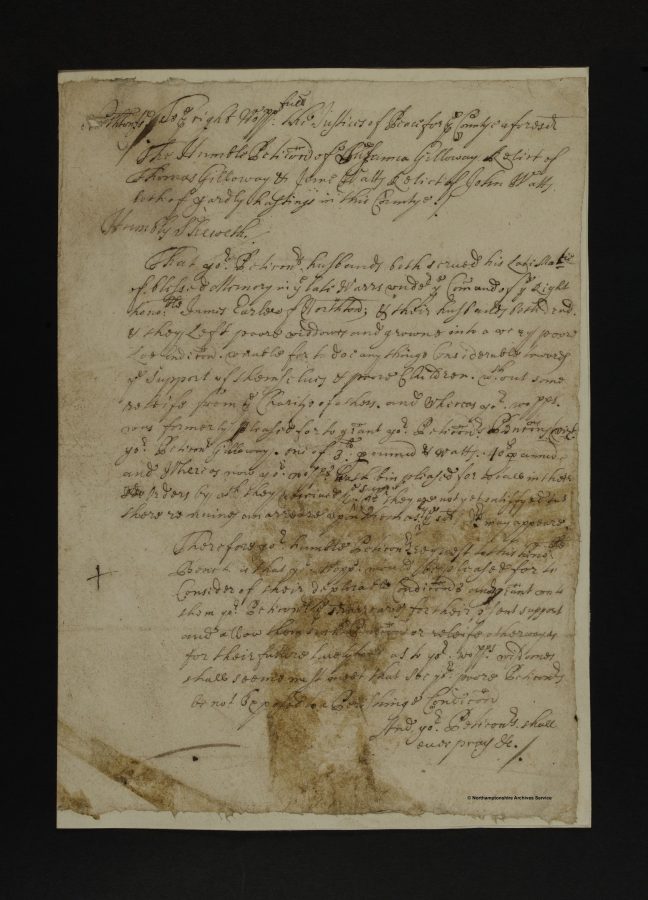 Northton sh To ye right Worpp:full the Justices of Peace for ye County aforesd
The Humble Peticõn of Susanna Gilloway Relict of
Thomas Gilloway & Jane Watts Relict of John Watts
both of yardly hastings in this County
Humbly Sheweth.
That yor. Peticonrs. husbands both served his Late Matie
of blessed Memory in ye late Warrs under ye Comand of ye Right
honoble James Earle of Northton; & their husbands both dead
& they Left poore widdowes and growne into a very poore
Low Condicõn. unable for to doe any thinge Considerable towards
ye Support of themselves & poore Children. without some
releife from ye Charity of others. and Whereas yor. worpps.
were formerly pleased for to grant yor. Peticonrs Pentions
yor. Peticonr Gilloway. one of 3 pound & Watts. 40s
and Whereas now yor. worpps hath bin pleased for to call in their
Orders by wch they received they are not yet satisfyed but
there remaines an arreare may appeare
Therefore yor. humble Peticonrs request to this honoble
Bench is that yor. worpps. would be pleased for to
Consider of their deplorable Condicõn and grant unto
them yor. Peticonrs ye arreares for their psent support
and allow them releife otherwayes
for their future as to yor. worpps. wisdomes
shall seeme most meet that soe yor. poore Peticonrs
be not Exposed to a Perishinge Condicõn
And yor. Peticonrs. shall
ever pray &c.
© Northamptonshire Archives Service